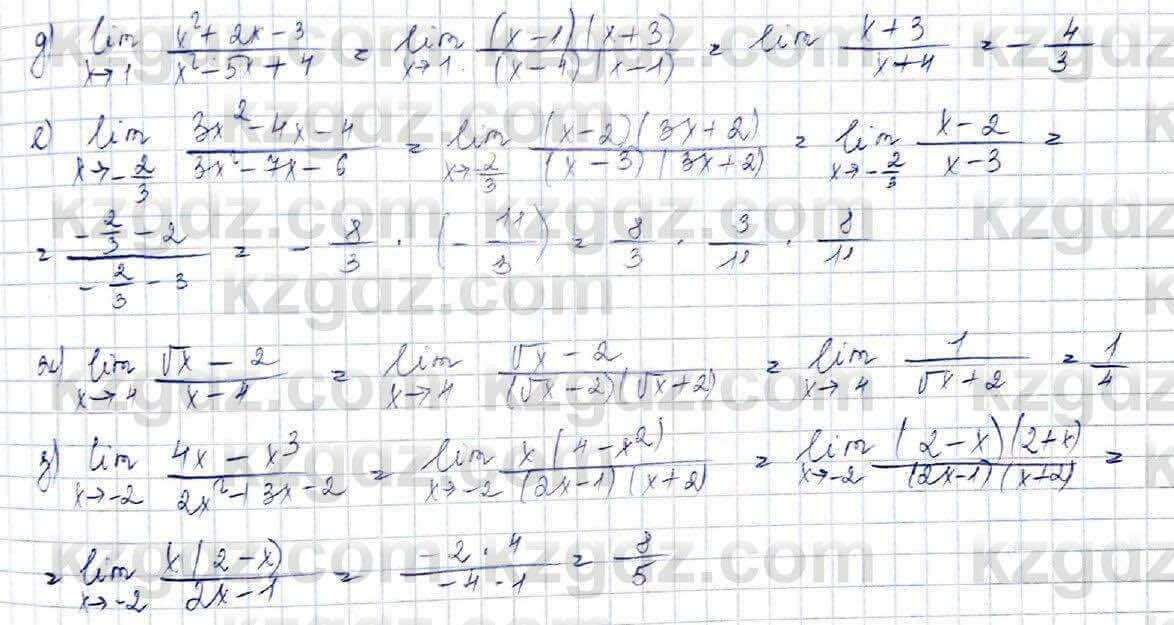 д) lim x→1 (x² + 2x - 3)/(x² - 5x + 4) = lim x→1 ((x-1)(x+3))/((x-4)(x-1)) = lim (x+3)/(x+4) = - 4/3
е) lim x→-2/3 (3x² - 4x - 4)/(3x² - 7x - 6) = lim x→-2/3 ((x-2)(3x+2))/((x-3)(3x+2)) = lim x→-2/3 (x-2)/(x-3) =
= (-2/3 - 2)/(-2/3 - 3) = - 8/3 · (- 11/3) = 8/3 · 3/11 · 8/11
ж) lim x→4 (√x - 2)/(x - 4) = lim x→4 (√x - 2)/((√x - 2)(√x + 2)) = lim x→4 1/(√x + 2) = 1/4
з) lim x→-2 (4x - x³)/(2x² + 3x - 2) = lim x→-2 (x(4 - x²))/((2x-1)(x+2)) = lim x→-2 ((2-x)(2+x))/((2x-1)(x+2)) =
= lim x→-2 (x(2-x))/(2x-1) = (-2·4)/(-4-1) = 8/5
kzgdz.com